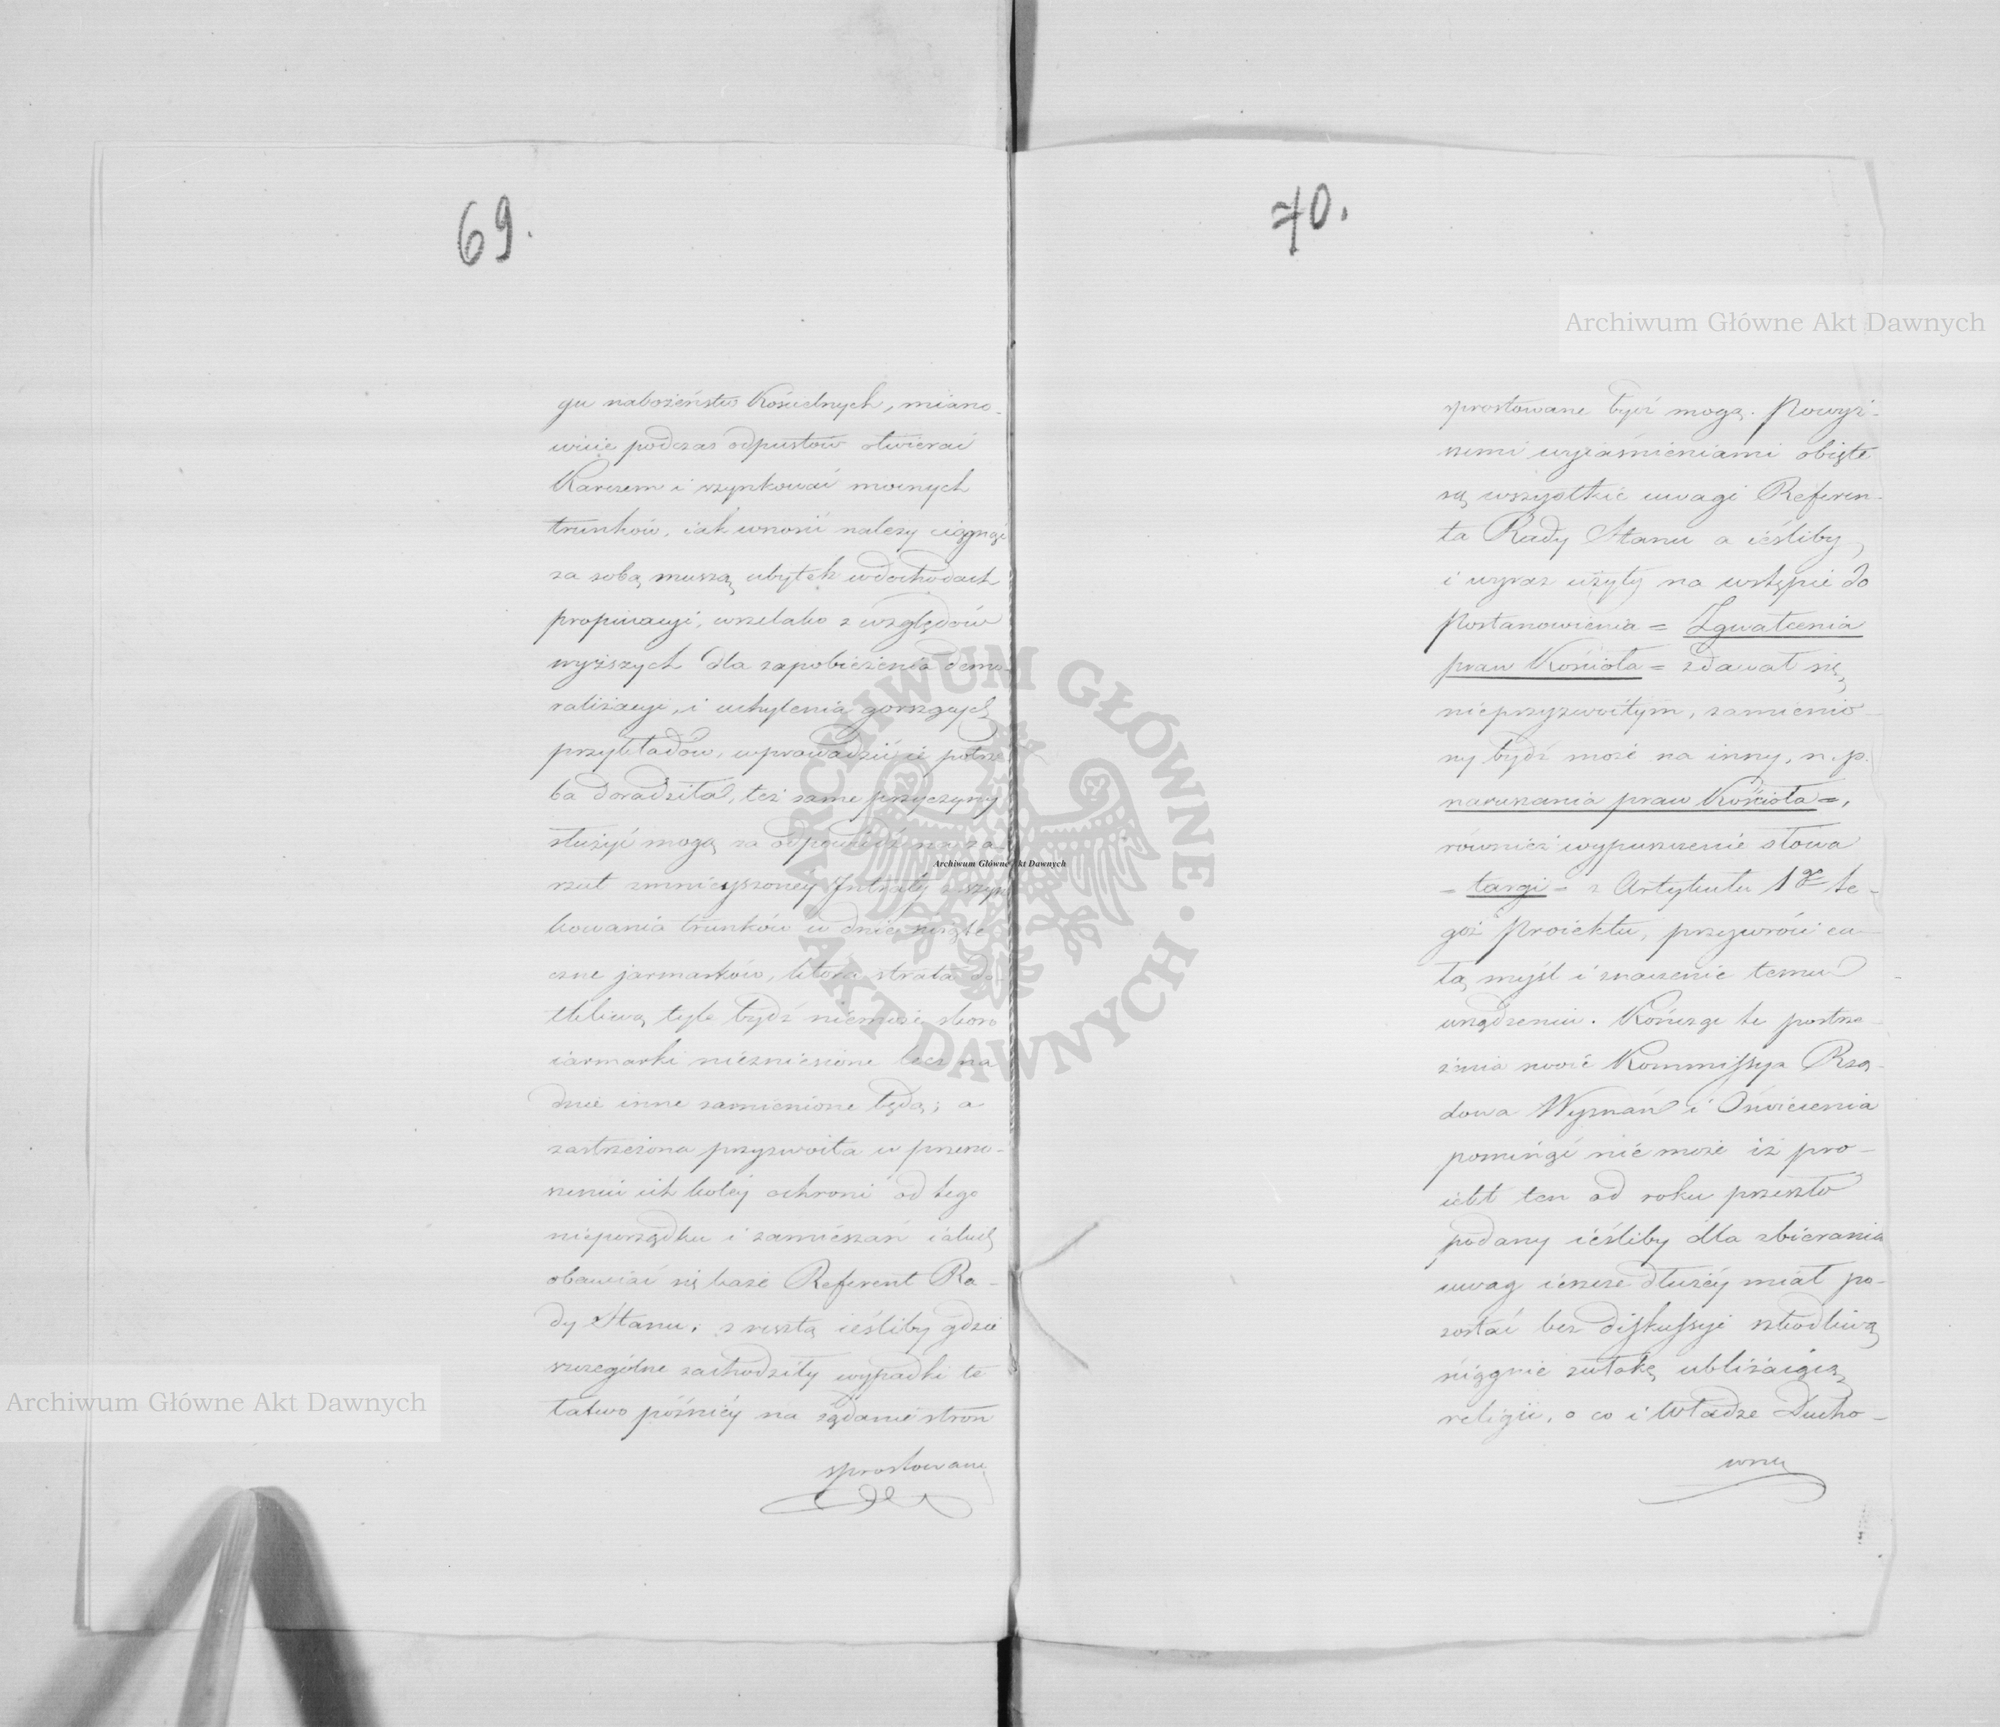 69.
gu nabożeństw Kościelnych, miano-
wicie podczas odpustów otwierać
Karczem i szynkować mocnych
trunków, iak wnosić należy ciągnąć
za sobą muszą ubytek w dochodach
propinacyi, wszelako z względów
wyższych dla zapobieżenia demo-
ralizacyi, i uchylenia gorszących
przykładów, wprowadzić ie potrze-
ba doradziła, też same przyczyny
służyć mogą za odpowiedź na za-
rzut zmnieyszoney Intraty z szyn-
kowania trunków w dnie świąte-
czne jarmarków, która strata do-
tkliwą tyle bydź niemoże skoro
iarmarki niezniesione lecz na
dnie inne zamienione będą; a
zastrzeżona przyzwoita w przeno-
szeniu ich koléy ochroni od tego
nieporządku i zamieszań iakich
obawiać się każe Referent Ra-
dy Stanu; z resztą ieśliby gdzie
szczególne zachodziły wypadki te
łatwo późniéy na żądanie stron
sprostowane
70.
sprostowane być mogą. Powyż-
szemi wyiaśnieniami obięte
są wszystkie uwagi Referen-
ta Rady Stanu a ieśliby
i wyraz użyty na wstępie do
Postanowienia = Zgwałcenia
praw Kościoła = zdawał się
nieprzyzwoitym, zamienio-
ny bydź może na inny, n. p.
naruszania praw Kościoła =,
również wypuszczenie słowa
= targi = z Artykułu 1go te-
goż Proiektu, przywróci ca-
łą myśl i znaczenie temu
urządzeniu. Kończąc te postrze-
żenia swoie Kommissya Rzą-
dowa Wyznań i Oświecenia
pominąć nie może iż pro-
iekt ten od roku przeszło
podany ieśliby dla zbierania
uwag ieszcze dłużéy miał po-
zostać bez diskussyi szkodliwą
ściągnie zwłokę ubliżaiącą
religii, o co i Władze Ducho-
wne
Archiwum Główne Akt Dawnych
Archiwum Główne Akt Dawnych
Archiwum Główne Akt Dawnych
ARCHIWUM GŁÓWNE · AKT DAWNYCH ·